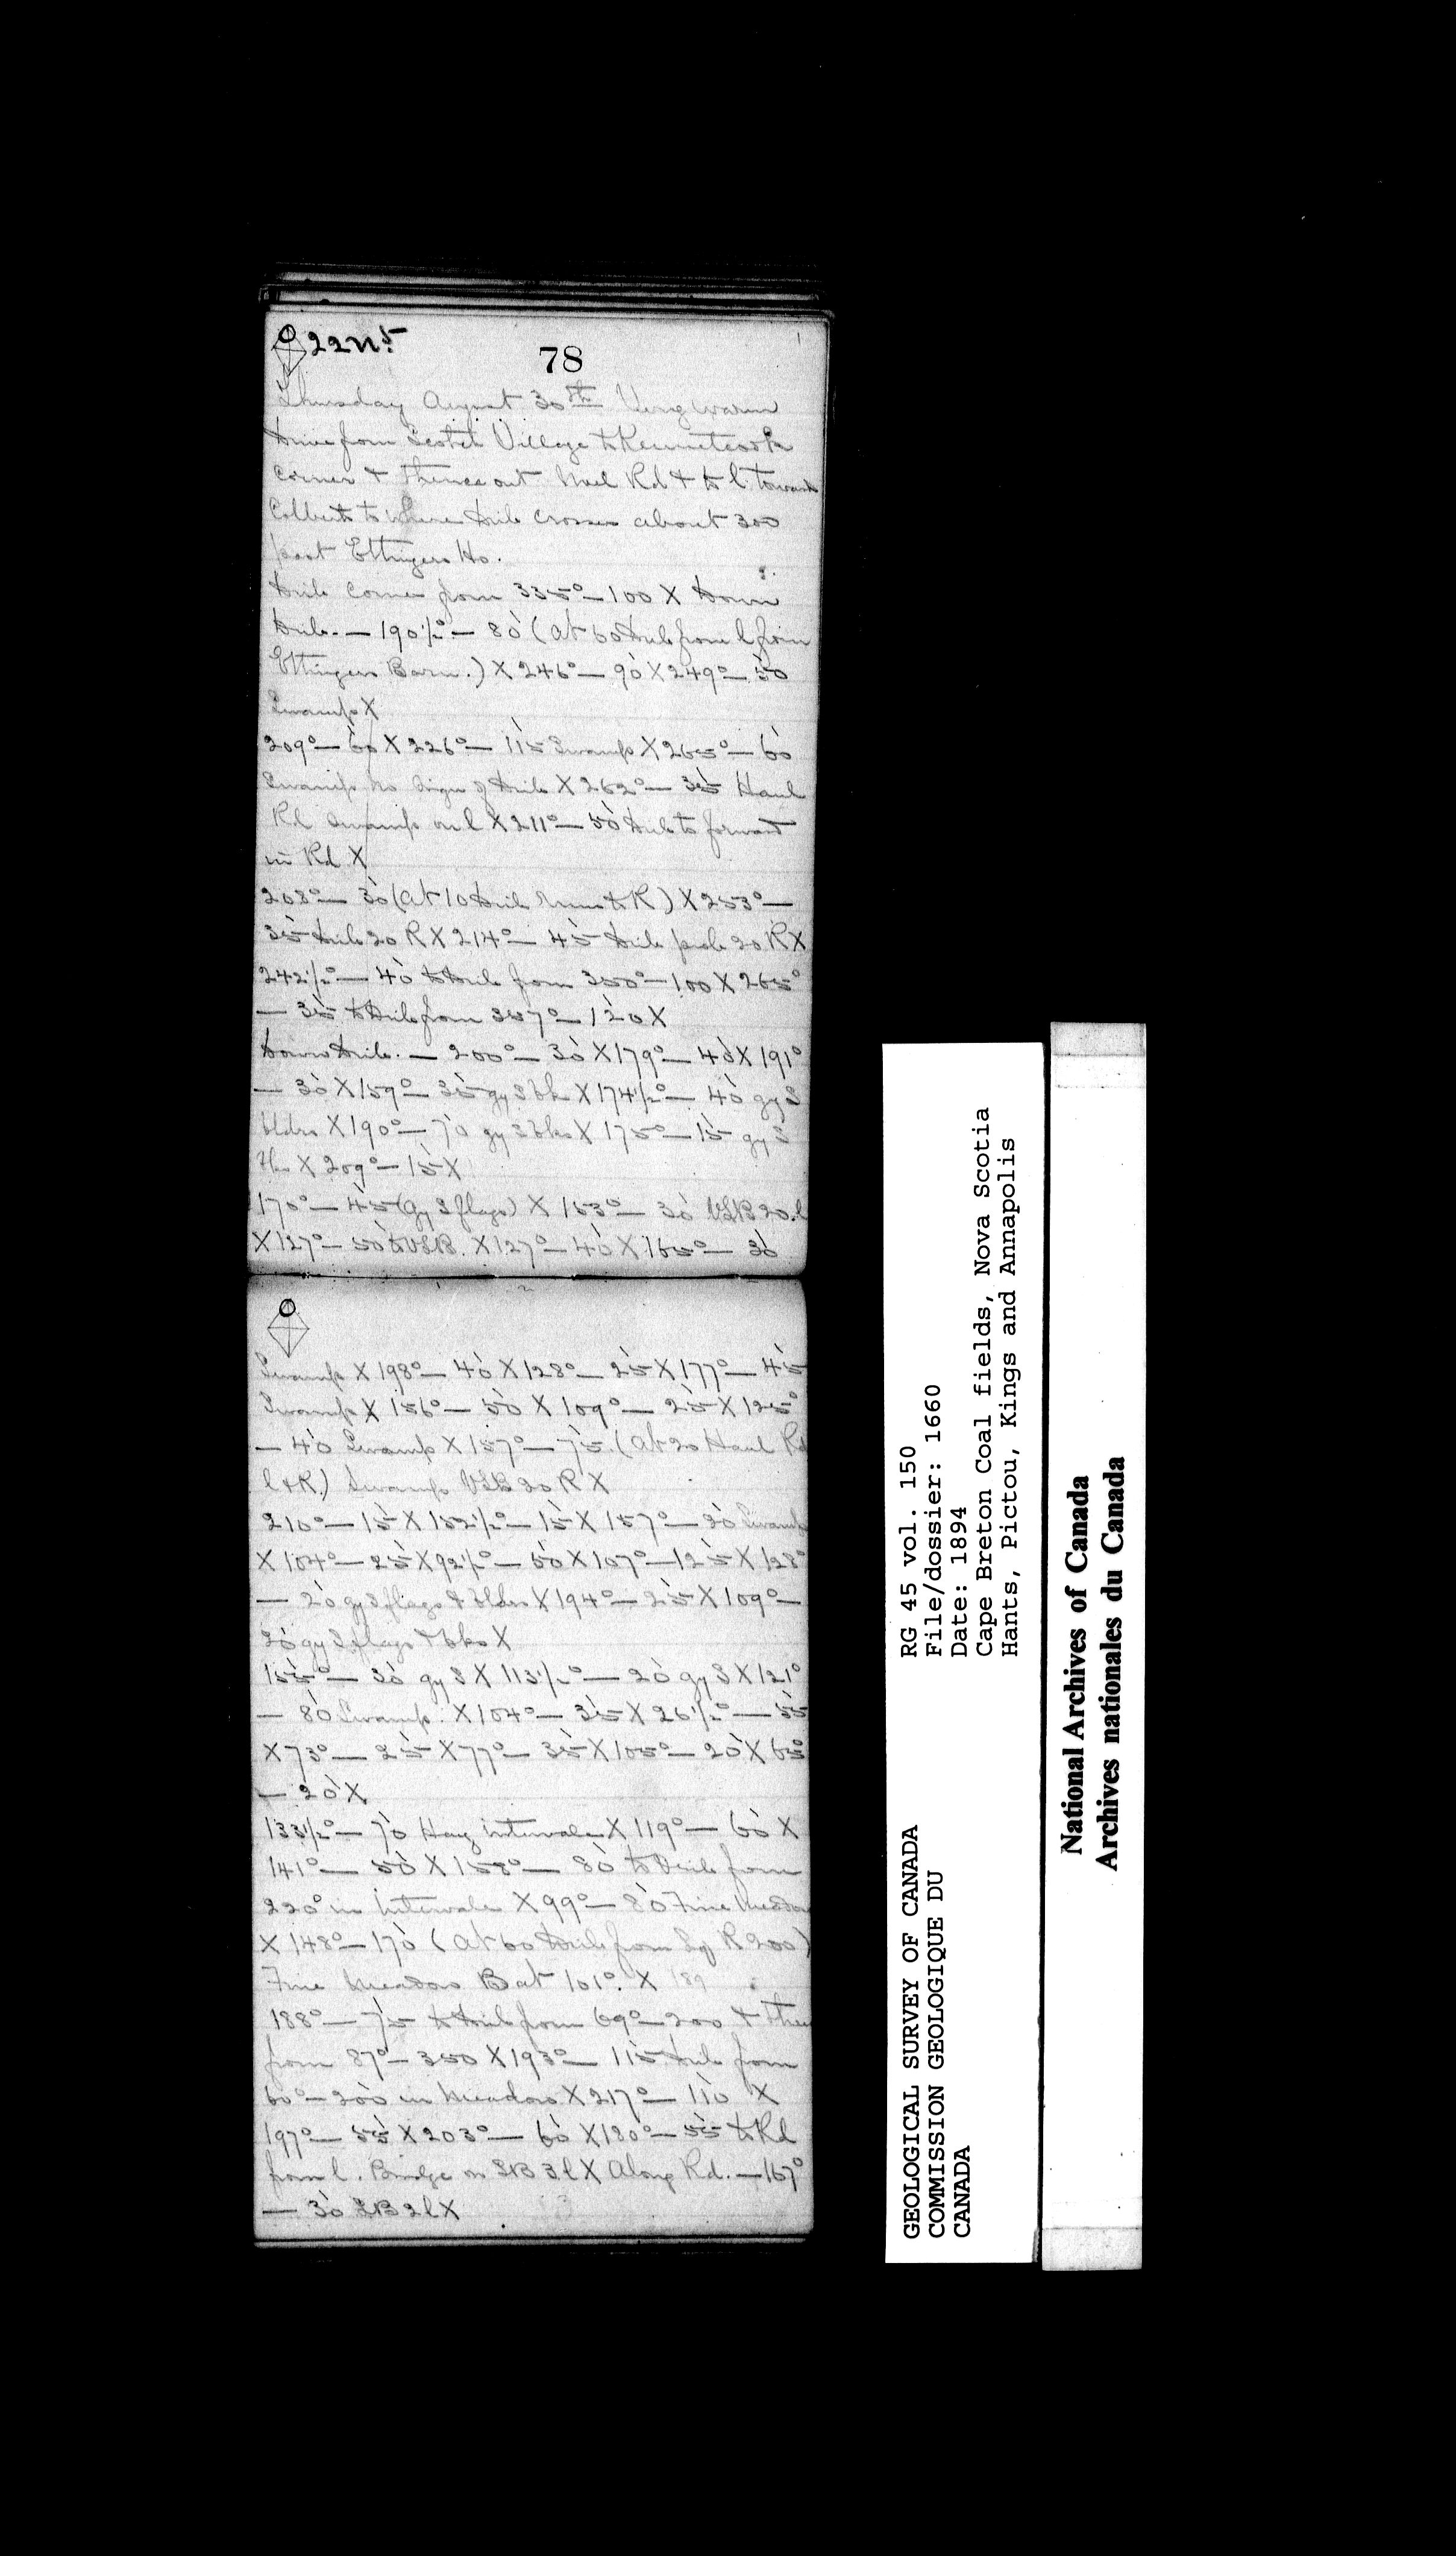 22 N⁵
78
Thursday August 30th Very warm
Drive from Scotch Village to Kennetcook
Corner & thence out Noel Rd & to l toward
Colberts to where brile crosses about 300
past Ettingers Ho.
brile comes from 335°—100 X Down
brile.—190½°—80 (at 60 brile from l from
Ettingers Barn.) X 246°—90 X 249°—50
Swamp X
209°—60 X 226°—115 Swamp X 265°—60
Swamp no sign of brile X 262°—35 Haul
Rd swamp on l X 211°—50 brile to forward
in Rd X
208°—30 (at 10 brile runs to R) X 253°—
35 brile 20 R X 214°—45 brile 20 R X
242½°—40 to brile from 350°—100 X 265°
—35 to brile from 357°—120 X
Down brile.—200°—30 X 179°—40 X 191°
—30 X 159°—35 gy S bk X 174½°—40 gy S
bldrs X 190°—70 gy S bks X 175°—15 gy S
X 209°—15 X
170°—45 (gy S flags) X 153°—30 VSB 20 l
X 127°—50 to VSB. X 127°—40 X 165°—30
Swamp X 198°—40 X 128°—25 X 177°—45
Swamp X 156°—50 X 109°—25 X 125°
—40 Swamp X 157°—75 (at 20 Haul Rd
l & R.) Swamp VSB 20 R X
210°—15 X 152½°—15 X 157°—20 Swamp
X 104°—25 X 92½°—50 X 107°—125 X 128°
—20 gy S flags & bldrs X 194°—25 X 109°—
20 gy S flags & bks X
155°—30 gy S X 113½°—20 gy S X 121°
—80 Swamp. X 104°—35 X 26½°—55
X 73°—25 X 77°—35 X 105°—20 X 65°
—20 X
133½°—70 Hay intervale X 119°—60 X
141°—50 X 158°—80 to brile from
220° in Intervale X 99°—80 Fine meadow
X 148°—170 (at 60 brile from R 200)
Fine meadow B at 101°. X 189
188°—75 to brile from 69°—200 & then
from 87°—350 X 193°—115 brile from
60°—200 in meadow X 217°—110 X
197°—55 X 203°—60 X 180°—55 to Rd
from l. Bridge on SB 3 l X Along Rd.—167°
—30 SB 2 l X
RG 45 vol. 150
File/dossier: 1660
Date: 1894
Cape Breton Coal fields, Nova Scotia
Hants, Pictou, Kings and Annapolis
GEOLOGICAL SURVEY OF CANADA
COMMISSION GEOLOGIQUE DU
CANADA
National Archives of Canada
Archives nationales du Canada